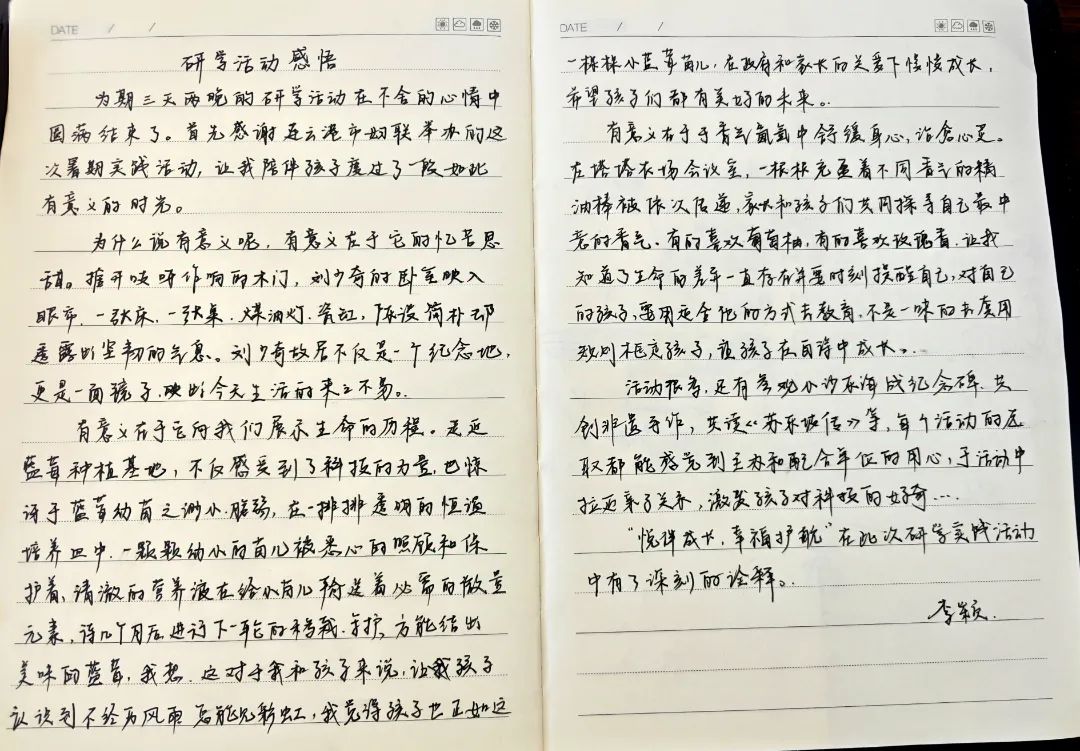 DATE / /
研学活动感悟
为期三天两晚的研学活动在不舍的心情中
圆满结束了。首先感谢连云港市妇联举办的这
次暑期实践活动,让我陪伴孩子度过了一段如此
有意义的时光。
为什么说有意义呢,有意义在于它的忆苦思
甜。推开吱呀作响的木门,刘少奇的卧室映入
眼帘,一张床、一张桌、煤油灯、瓷缸,陈设简朴却
透露出坚韧的气息。刘少奇故居不仅是一个纪念地,
更是一面镜子,映出今天生活的来之不易。
有意义在于它向我们展示生命的历程。走进
蓝莓种植基地,不仅感受到了科技的力量,也惊
讶于蓝莓幼苗之渺小、脆弱,在一排排透明的恒温
培养皿中,一颗颗幼小的苗儿被悉心的照顾和保
护着,清澈的营养液在给小苗儿输送着必需的微量
元素,待几个月后进行下一轮的移栽、养护,方能结出
美味的蓝莓,我想,这对于我和孩子来说,让我孩子
认识到不经历风雨怎能见彩虹,我觉得孩子也正如这
DATE / /
一棵棵小蓝莓苗儿,在政府和家长的关爱下慢慢成长,
希望孩子们都有美好的未来。
有意义在于于香气氤氲中舒缓身心,治愈心灵。
在塔塔农场会议室,一根根充盈着不同香气的精
油棒被依次传递,家长和孩子们共同探寻自己最中
意的香气。有的喜欢葡萄柚,有的喜欢玫瑰香,让我
知道了生命的差异一直存在并要时刻提醒自己,对自己
的孩子,要用适合他的方式去教育,不是一味的去套用
规则框定孩子,让孩子在自诗中成长。
活动很多,还有参观小沙东海战纪念碑、共
创非遗手作,共读《苏东坡传》等,每个活动的选
取都能感觉到主办和配合单位的用心,于活动中
拉近亲子关系,激发孩子对科技的好奇...
“悦伴成长,幸福护航”在此次研学实践活动
中有了深刻的诠释。
李颖